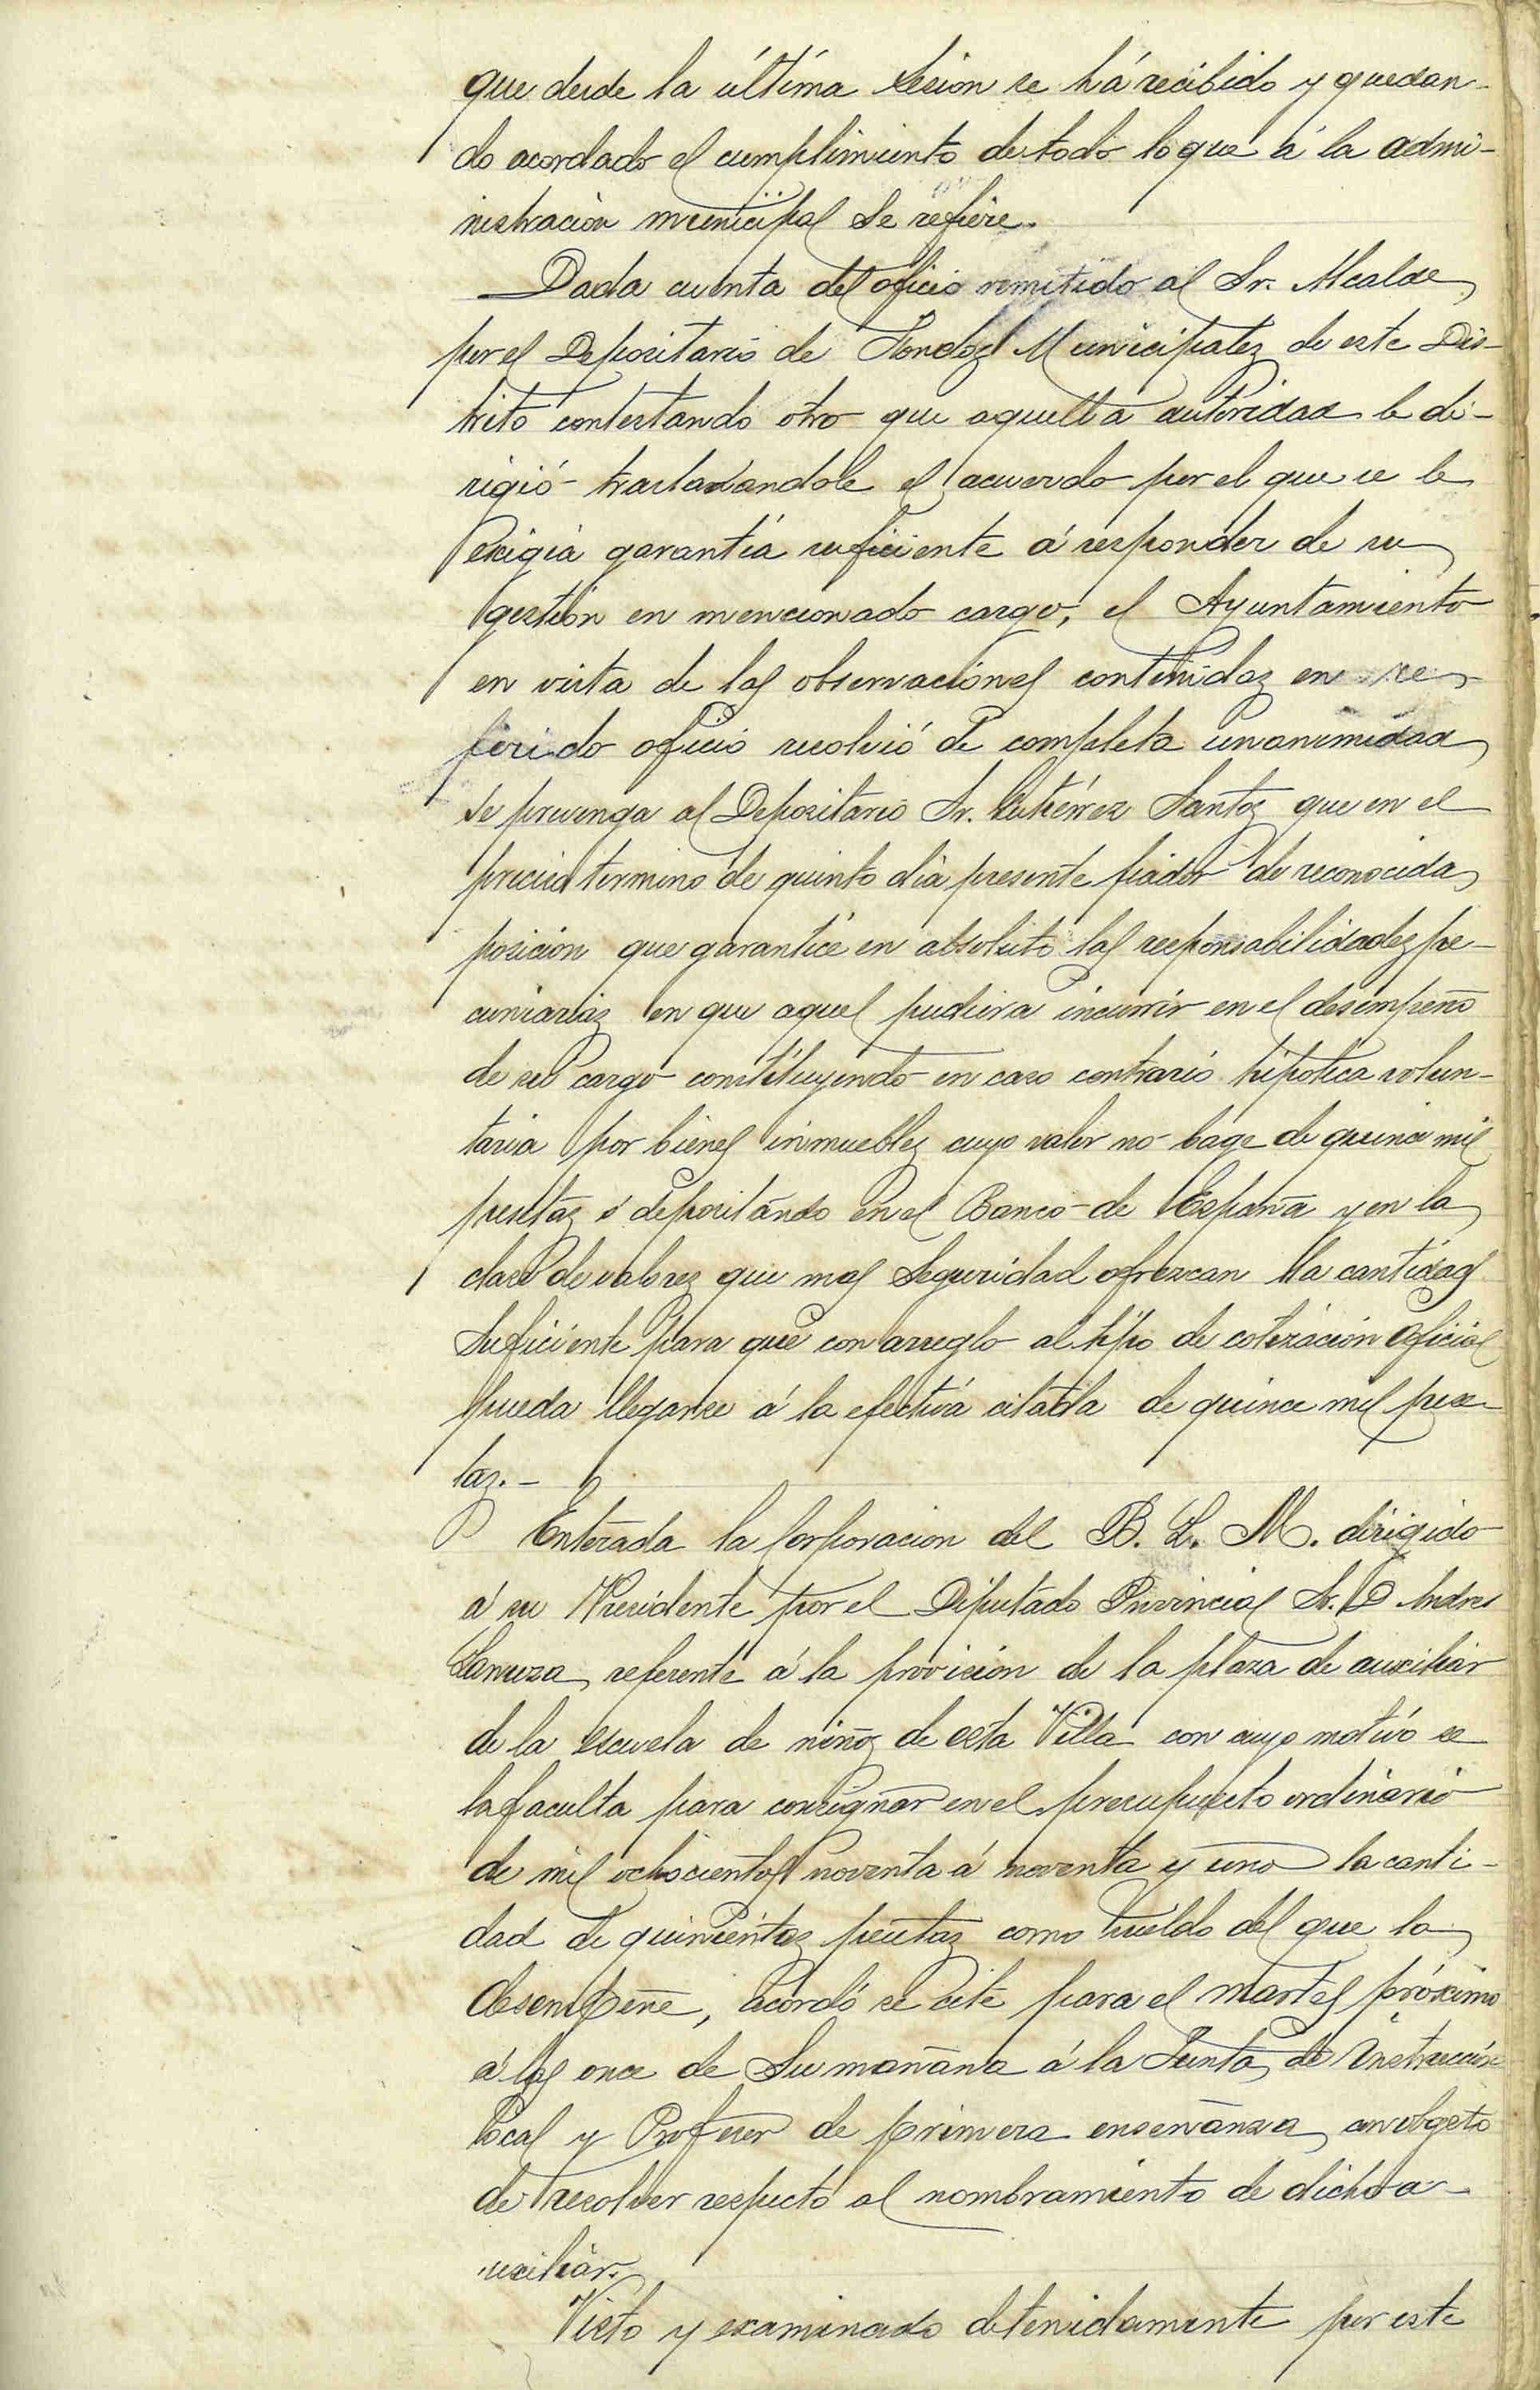 que desde la última sesion se há recibido y quedan-
do acordado el cumplimiento de todo lo que á la admi-
nistración municipal se refiere.
Dada cuenta del oficio remitido al Sr. Alcalde
por el Depositario de Fondos Municipales de este Dis-
trito contestando otro que aquella autoridad le di-
rigió trasladandole el acuerdo por el que se le
exigia garantía suficiente á responder de su
gestión en mencionado cargo, el Ayuntamiento
en vista de las observaciones contenidas en re-
ferido oficio resolvió de completa unanimidad
se prevenga al Depositario Sr. Gutiérrez Santos que en el
preciso termino de quinto dia presente fiador de reconocida
posición que garantice en absoluto las responsabilidades pe-
cuniarias en que aquel pudiera incurrir en el desempeño
de su cargo constituyendo en caso contrario hipoteca volun-
taria por bienes inmuebles cuyo valor no bage de quince mil
pesetas ó depositando en el Banco de España y en la
clase de valores que mas seguridad ofrezcan la cantidad
suficiente para que con arreglo al tipo de cotización oficial
pueda llegarse á la efectiva citada de quince mil pese-
tas.-
Enterada la Corporacion del B. L. M. dirigido
á su Presidente por el Diputado Provincial Sr. D Andres
Lanuza, referente á la provisión de la plaza de auxiliar
de la escuela de niños de esta Villa con cuyo motivo se
la faculta para consignar en el presupuesto ordinario
de mil ochocientos noventa á noventa y uno la canti-
dad de quinientas pesetas como sueldo del que la
desempeñe, acordó se cite para el martes próximo
á las once de su mañana á la Junta de Instrucción
local y Profesor de primera enseñanza, con obgeto
de resolver respecto al nombramiento de dicho a-
uxiliar.
Visto y examinado detenidamente por este